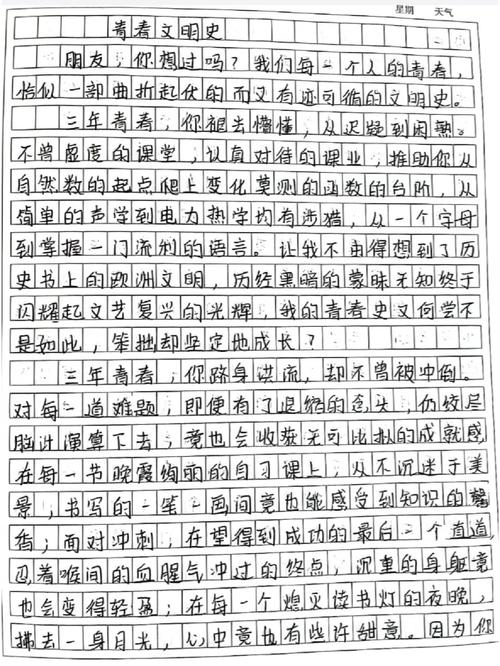 星期 天气
青春文明史
朋友,你想过吗?我们每一个人的青春,
恰似一部曲折起伏的而又有迹可循的文明史。
三年青春,你褪去懵懂,从迟疑到闲熟。
不曾虚度的课堂,认真对待的课业,推助你从
自然数的起点爬上变化莫测的函数的台阶,从
简单的声学到电力热学均有涉猎,从一个字母
到掌握一门流利的语言。让我不由得想到了历
史书上的欧洲文明,历经黑暗的蒙昧无知终于
闪耀起文艺复兴的光辉,我的青春史又何尝不
是如此,笨拙却坚定地成长?
三年青春,你跻身洪流,却不曾被冲倒。
对每一道难题,即便有了退缩的念头,仍绞尽
脑汁演算下去,竟也会收获无可比拟的成就感
在每一节晚霞绚丽的自习课上,从不沉迷于美
景,书写的一笔一画间竟也能感受到知识的馨
香;面对冲刺,在望得到成功的最后一个直道
忍着喉间的血腥气冲过的终点,沉重的身躯竟
也会变得轻盈;在每一个熄灭读书灯的夜晚,
拂去一身月光,心中竟也有些许甜意。因为你